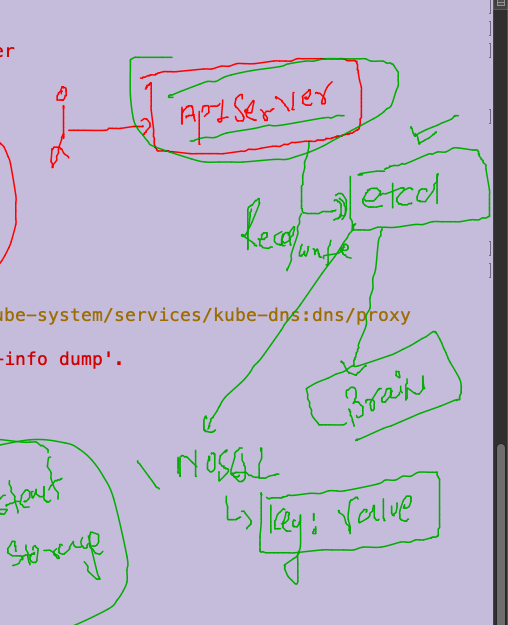 er
API Server
etcd
Read/write
ube-system/services/kube-dns:dns/proxy
-info dump'.
Brain
NOSQL
Key: Value
storage